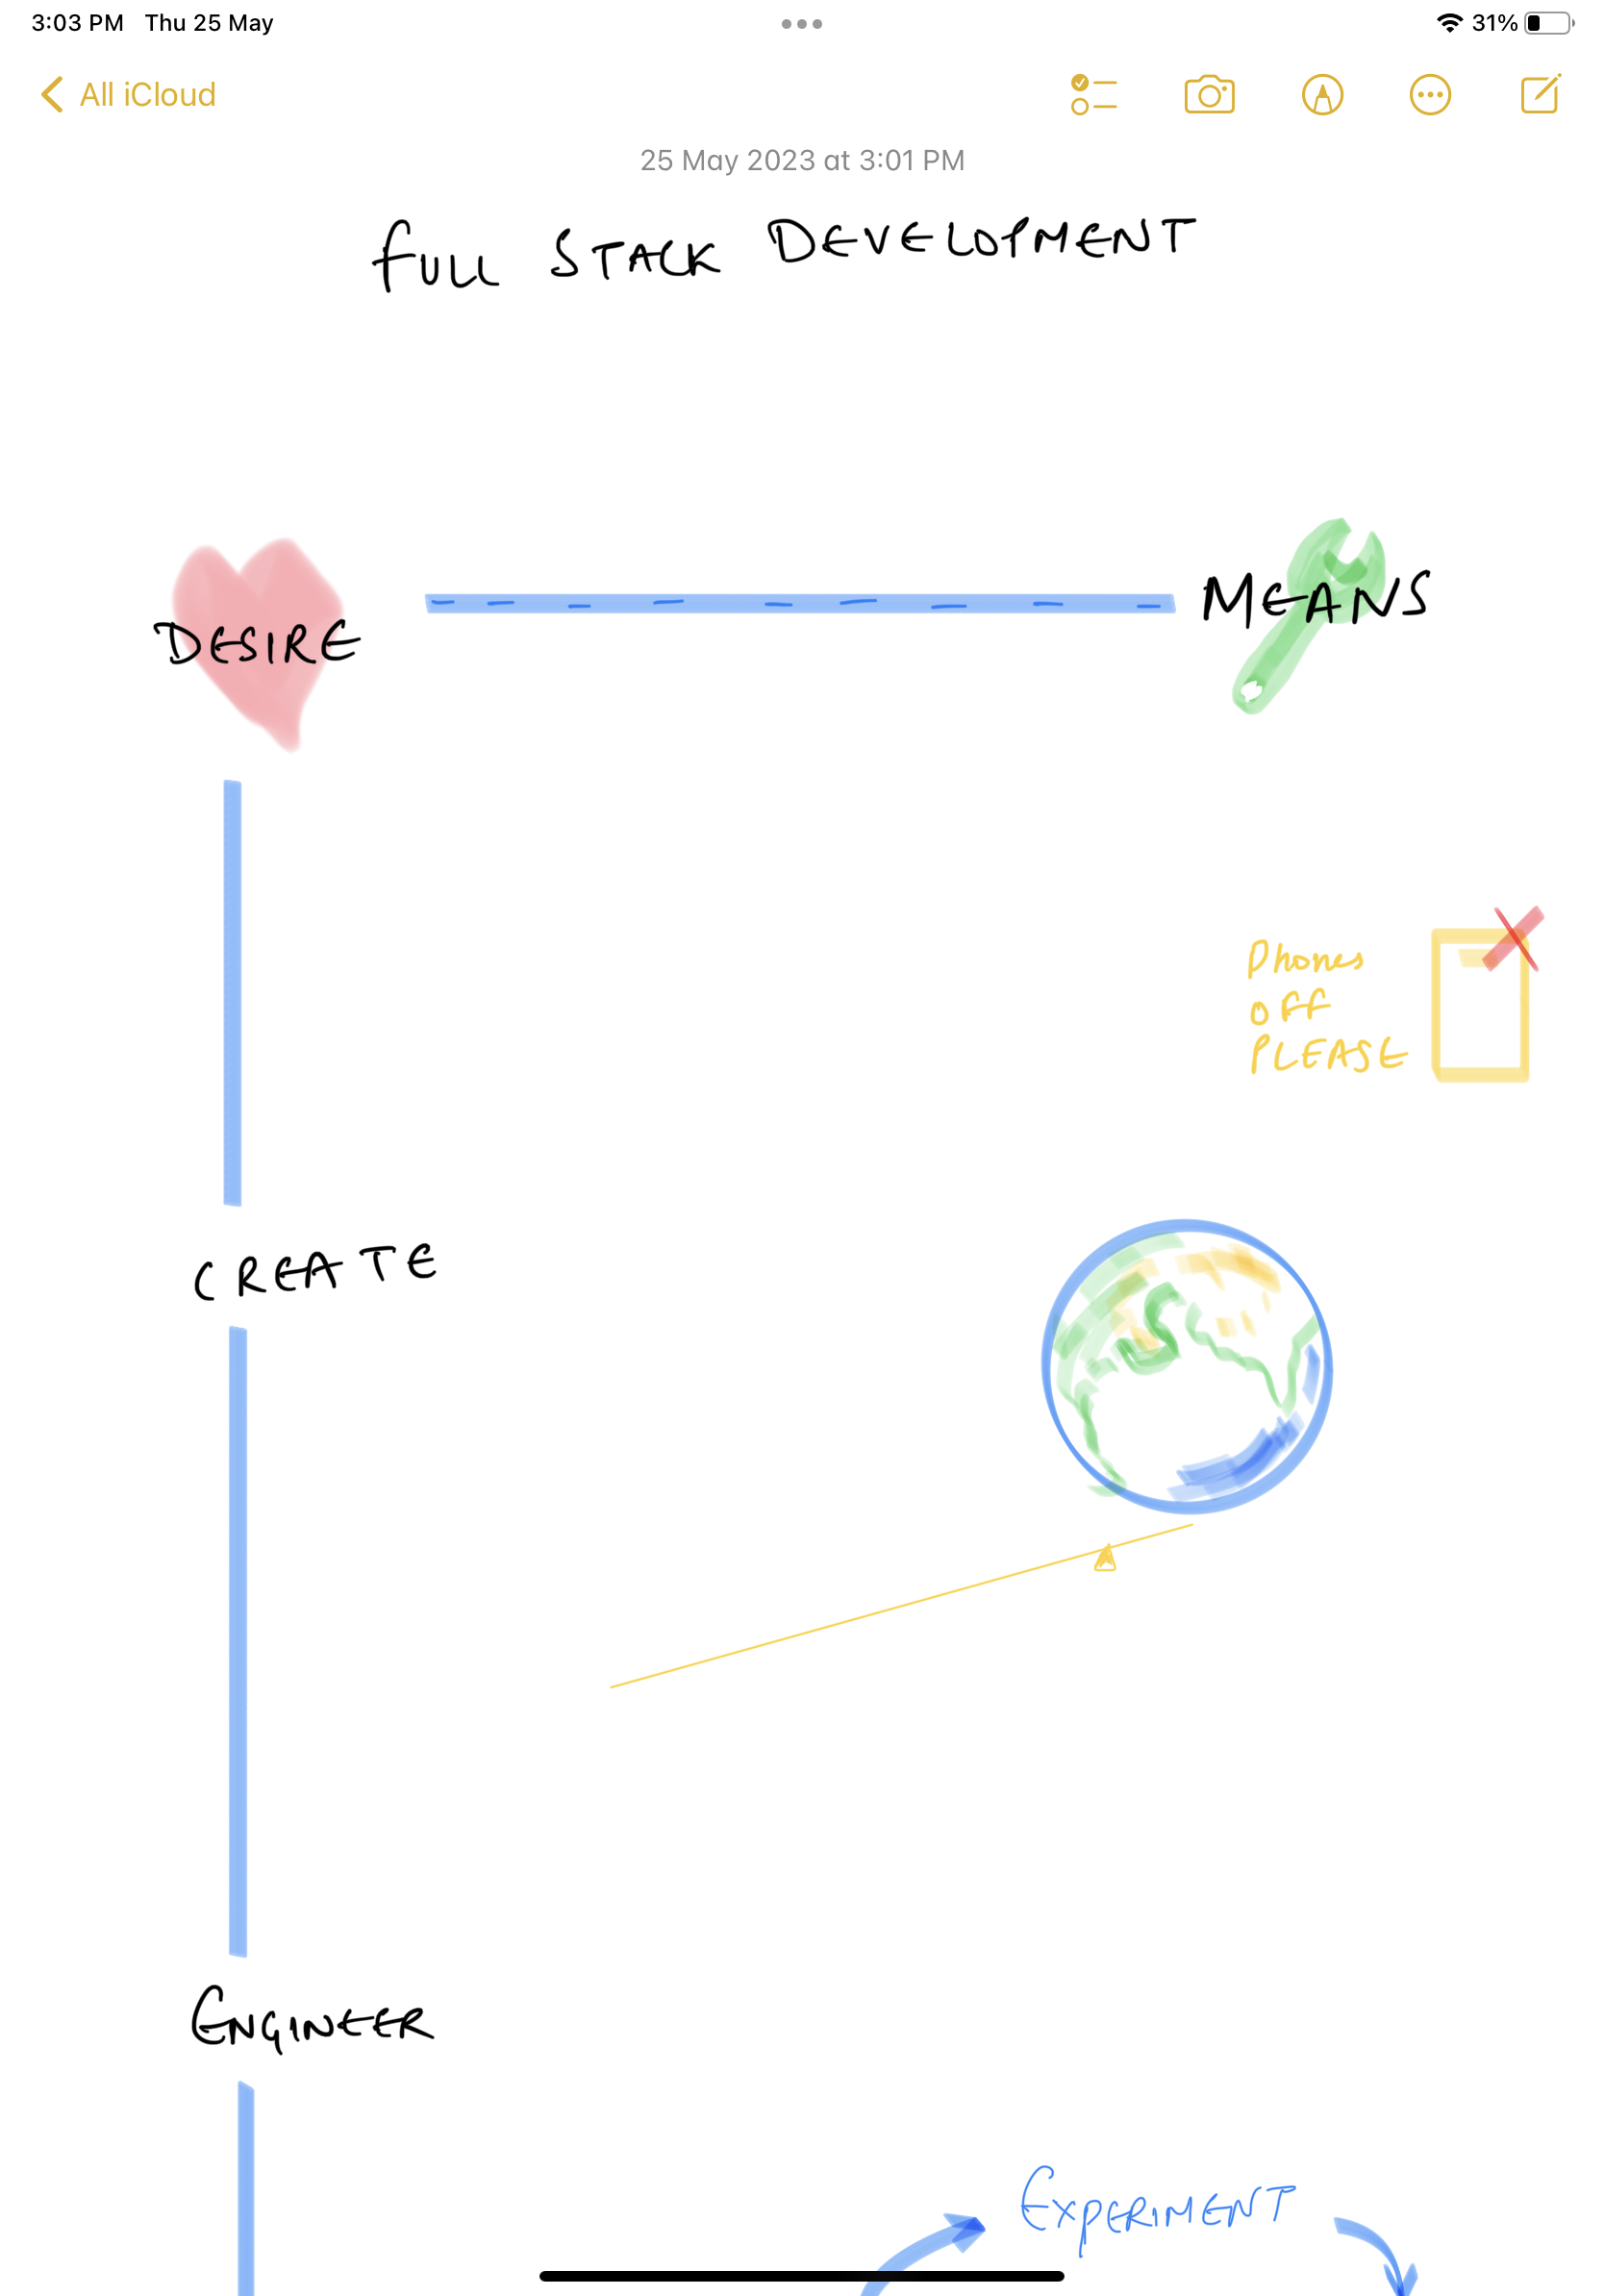 3:03 PM Thu 25 May
31%
All iCloud
25 May 2023 at 3:01 PM
FULL STACK DEVELOPMENT
DESIRE
MEANS
Phones
OFF
PLEASE
CREATE
ENGINEER
EXPERIMENT